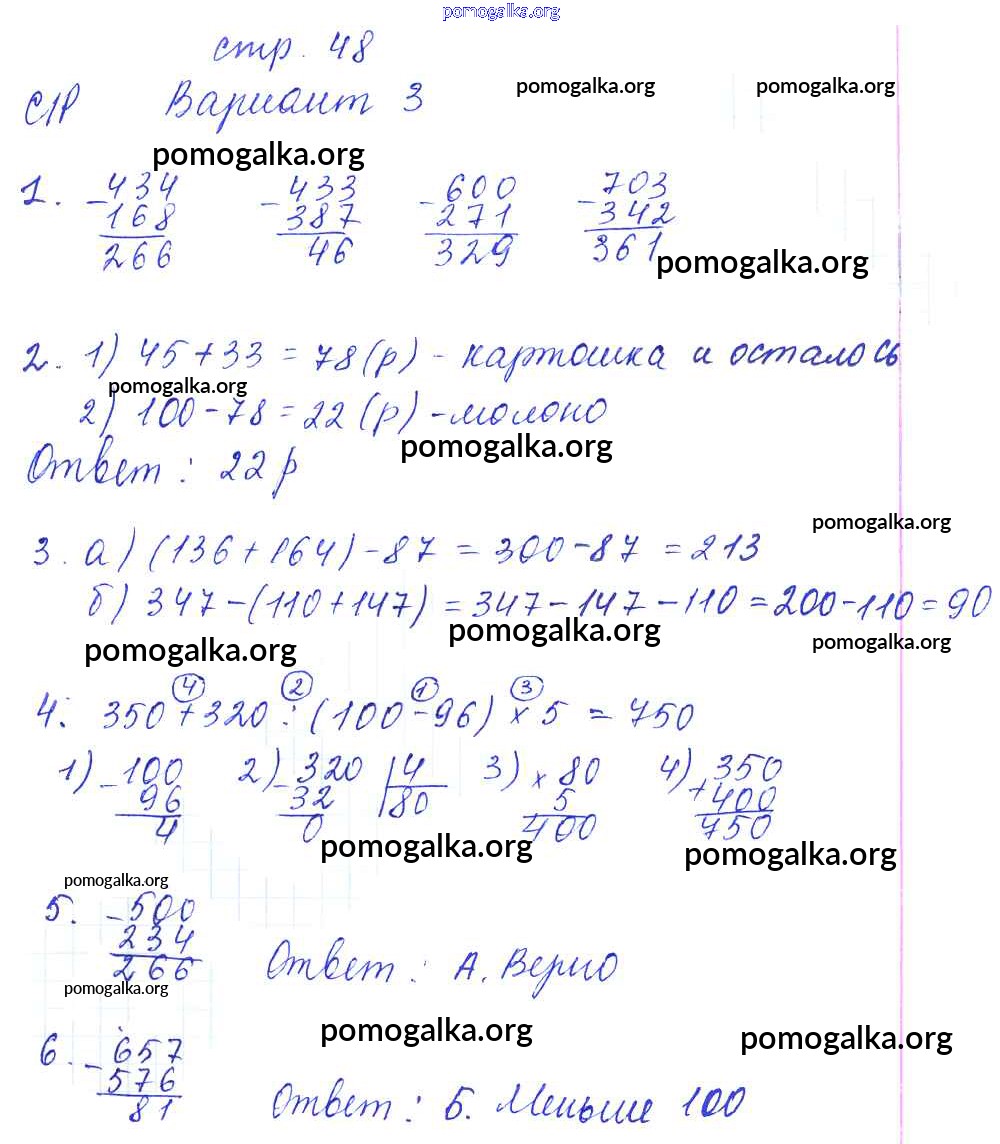 pomogalka.org
стр. 48
С/Р Вариант 3
pomogalka.org pomogalka.org
pomogalka.org
1. -434 -433 -600 -703
168 387 271 342
266 46 329 361
pomogalka.org
2. 1) 45+33=78(р) - картошка и осталось
pomogalka.org
2) 100-78=22(р)-молоко
pomogalka.org
Ответ: 22р
pomogalka.org
3. а) (136+164)-87=300-87=213
б) 347-(110+147)=347-147-110=200-110=90
pomogalka.org pomogalka.org pomogalka.org
④ ② ① ③
4. 350+320:(100-96)×5=750
1) -100 2) -320 |4 3) ×80 4) +350
96 32 80 5 400
4 0 400 750
pomogalka.org pomogalka.org
pomogalka.org
5. -500
234
266 Ответ: А. Верно
pomogalka.org
pomogalka.org pomogalka.org
6. -657
576
81 Ответ: Б. Меньше 100